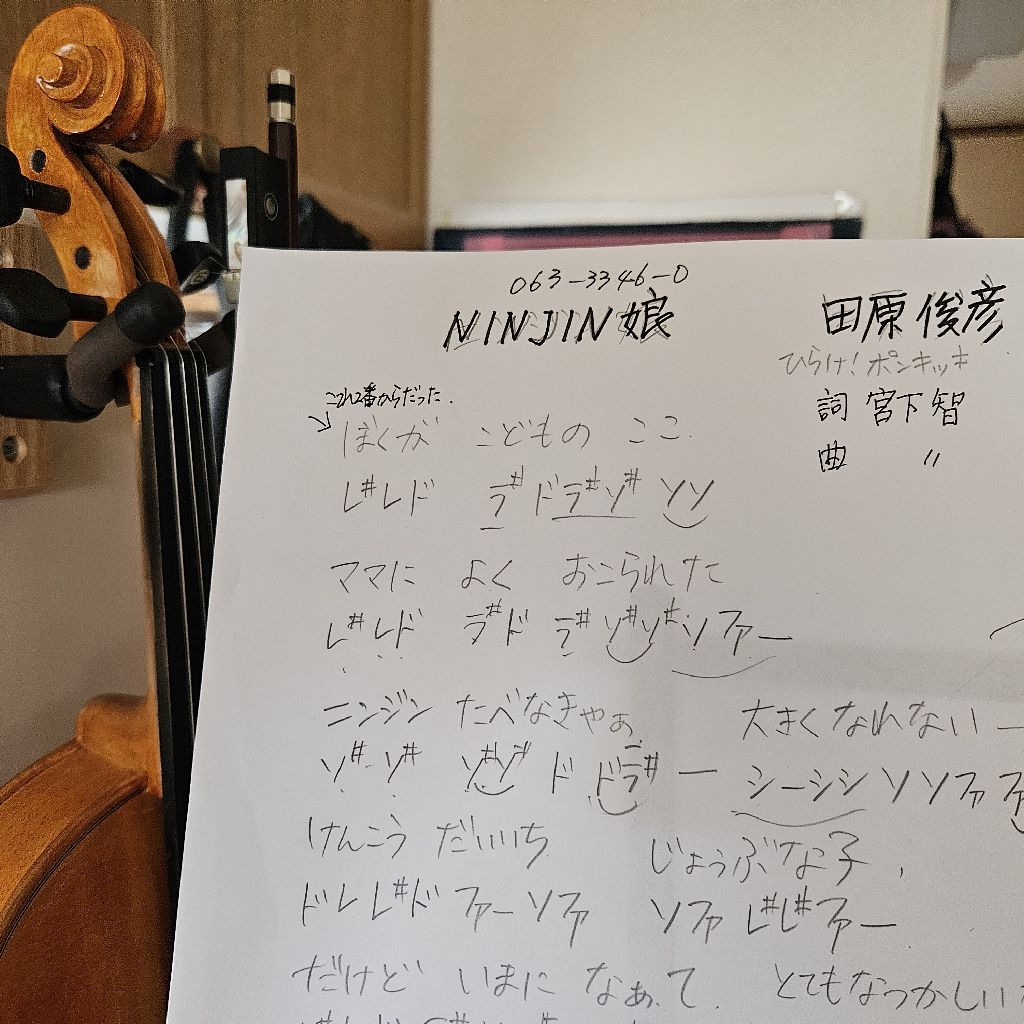 063-3346-0
NINJIN娘 田原俊彦
ひらけ!ポンキッキ
詞 宮下智
曲 〃
これ2番からだった.
ぼくが こどもの ここ
レ#レド ラ#ドラ#ソ# ソソ
ママに よく おこられた
レ#レド ラ#ド ラ#ソ#ソ#ソファー
ニンジン たべなきゃぁ 大きくなれないー
ソ#ソ# ソ#ソ# ド ドラ#ー シーシシソソファ
けんこう だいいち じょうぶな子,
ドレレ#ド ファーソファ ソファレ#レ#ファー
だけど いまに なぁて. とてもなつかしい